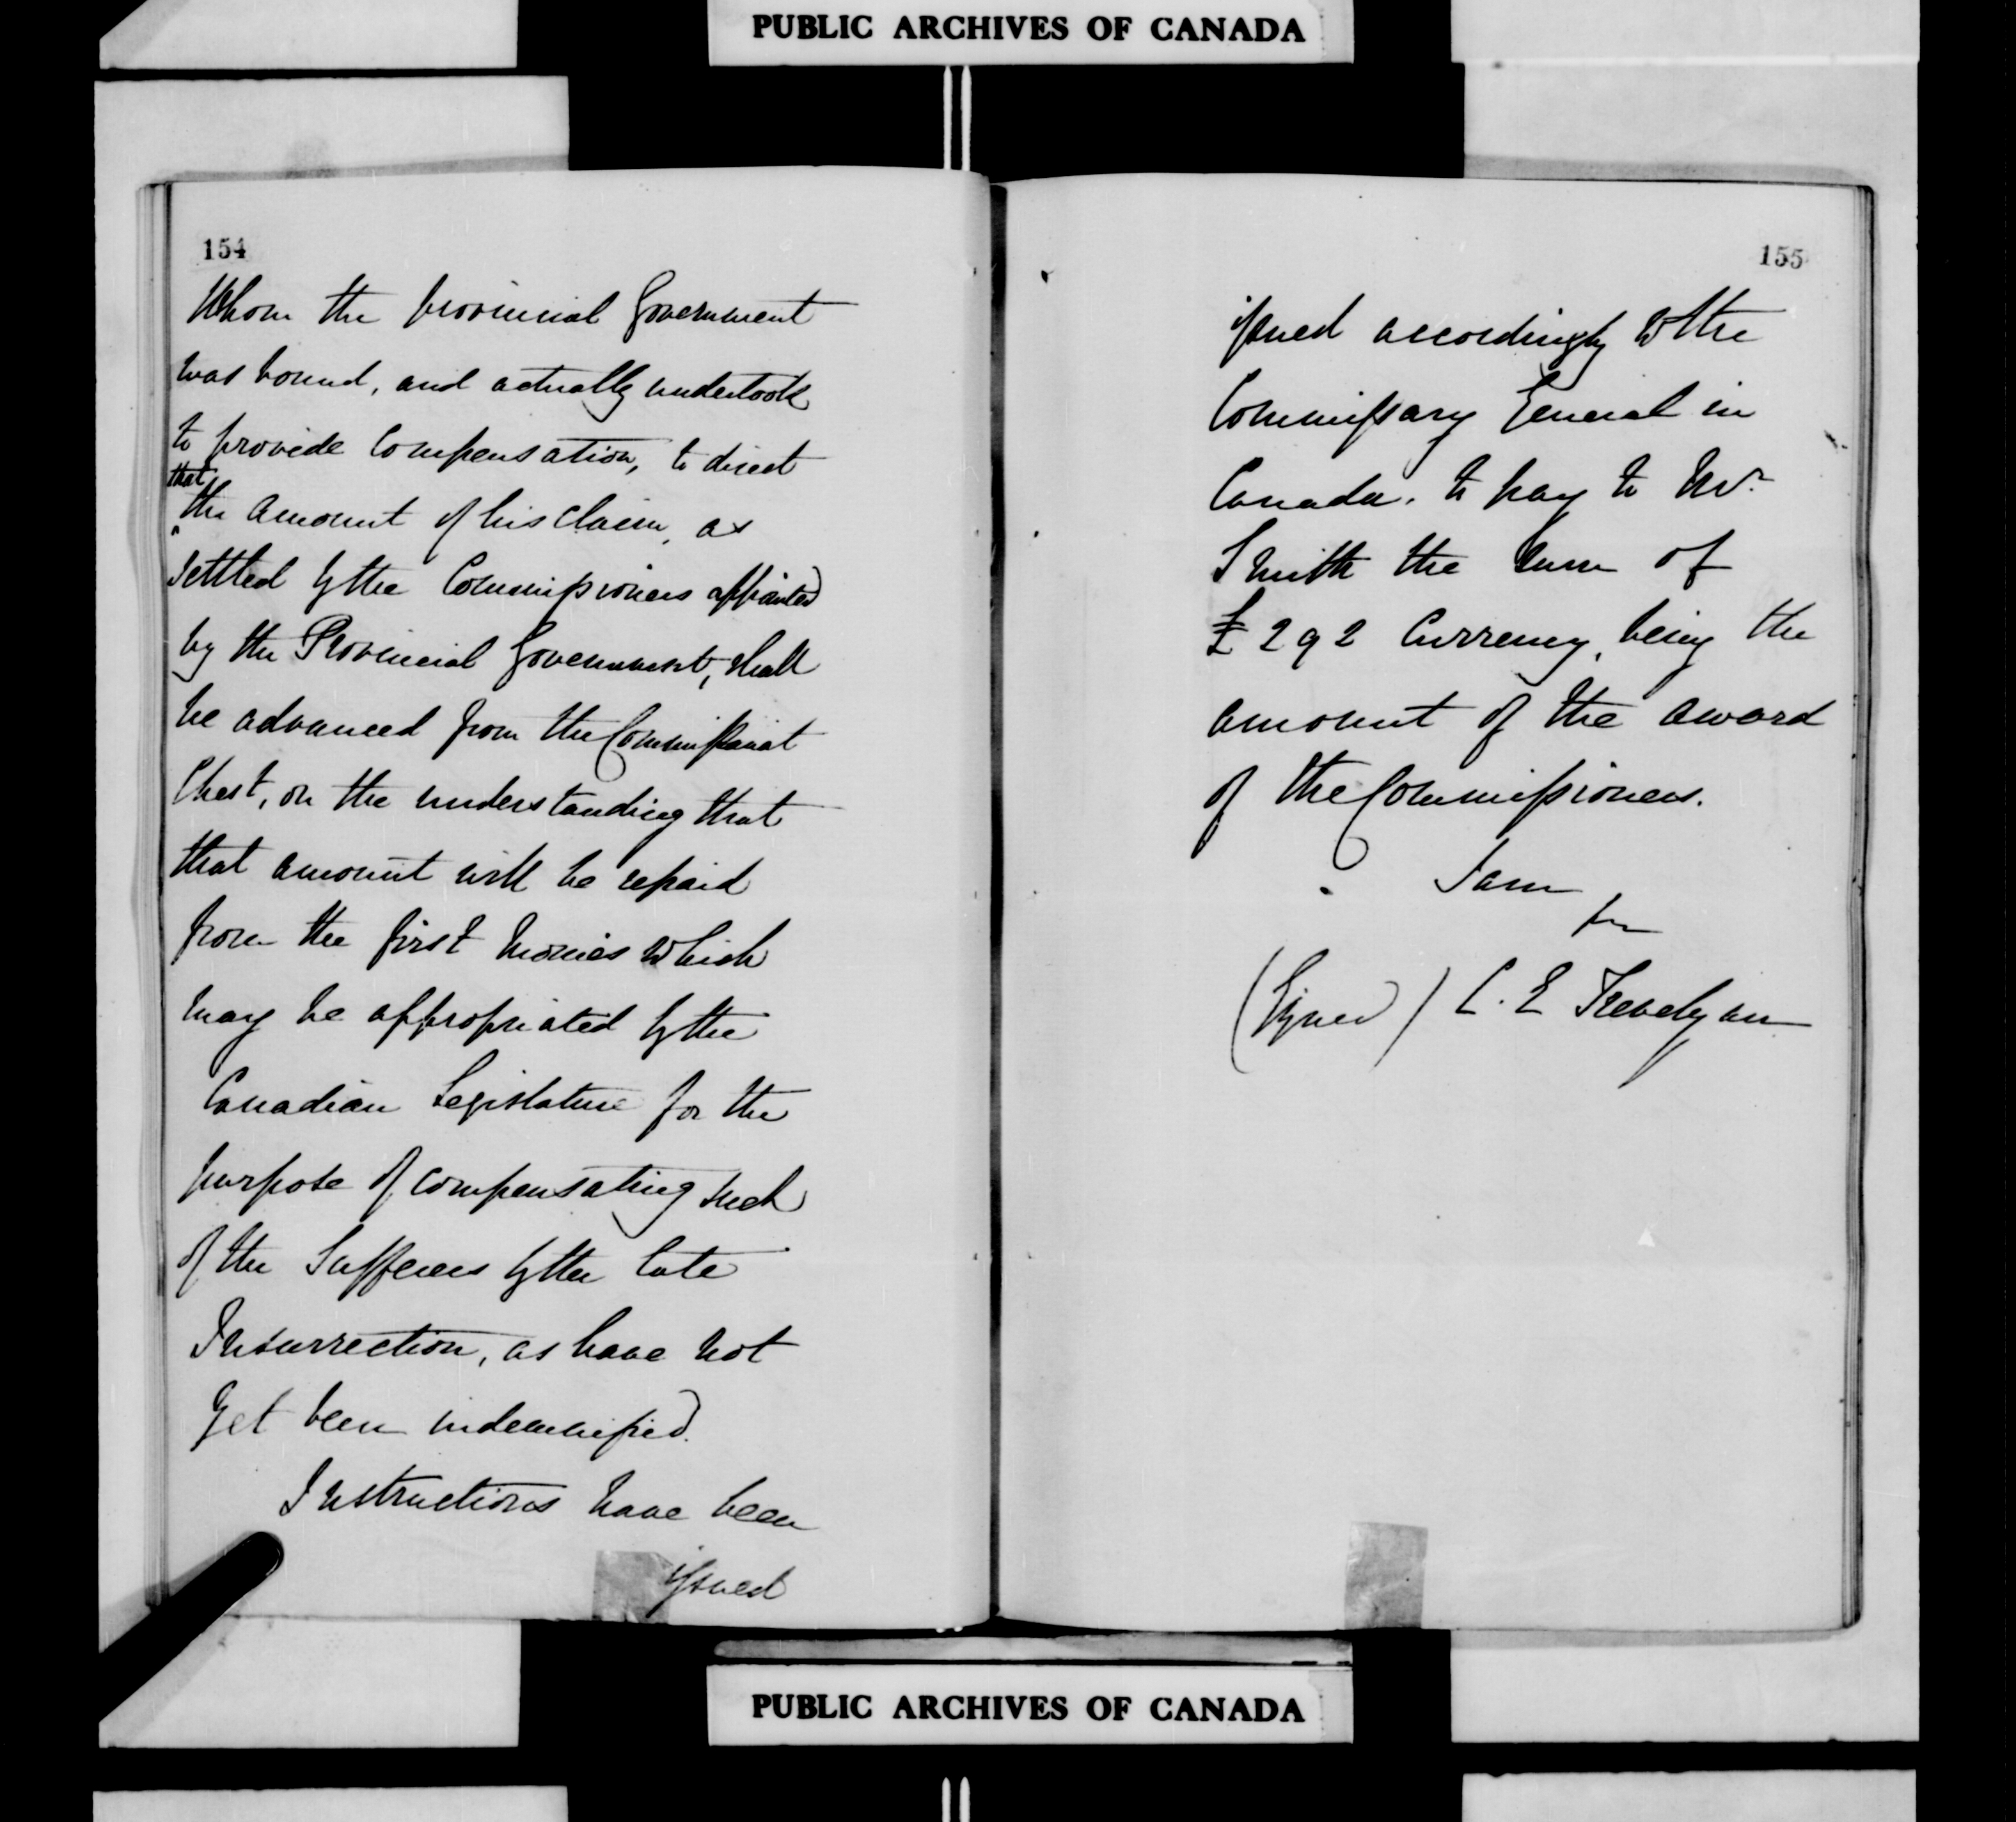 PUBLIC ARCHIVES OF CANADA
154
Whom the provincial Government
was bound, and actually undertook
to provide Compensation, to direct
that
the amount of his claim, as
settled by the Commissioners appointed
by the Provincial Government, shall
be advanced from the Commissariat
Chest, on the understanding that
that amount will be repaid
from the first monies which
may be appropriated by the
Canadian Legislature for the
purpose of compensating such
of the Sufferers by the late
Insurrection, as have not
yet been indemnified.
Instructions have been
issued
155
issued accordingly to the
Commissary General in
Canada, to pay to Mr.
Smith the sum of
£292 Currency, being the
amount of the award
of the Commissioners.
I am
(Signed) C. E Trevelyan
PUBLIC ARCHIVES OF CANADA